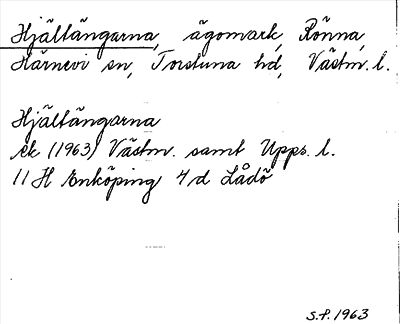 Hjältängarna, ägomark, Rönna,
Härnevi sn, Torstuna hd, Västm. l.
Hjältängarna
ek (1963) Västm. samt Upps. l.
11 H Enköping 4 d Lådö
S.F. 1963